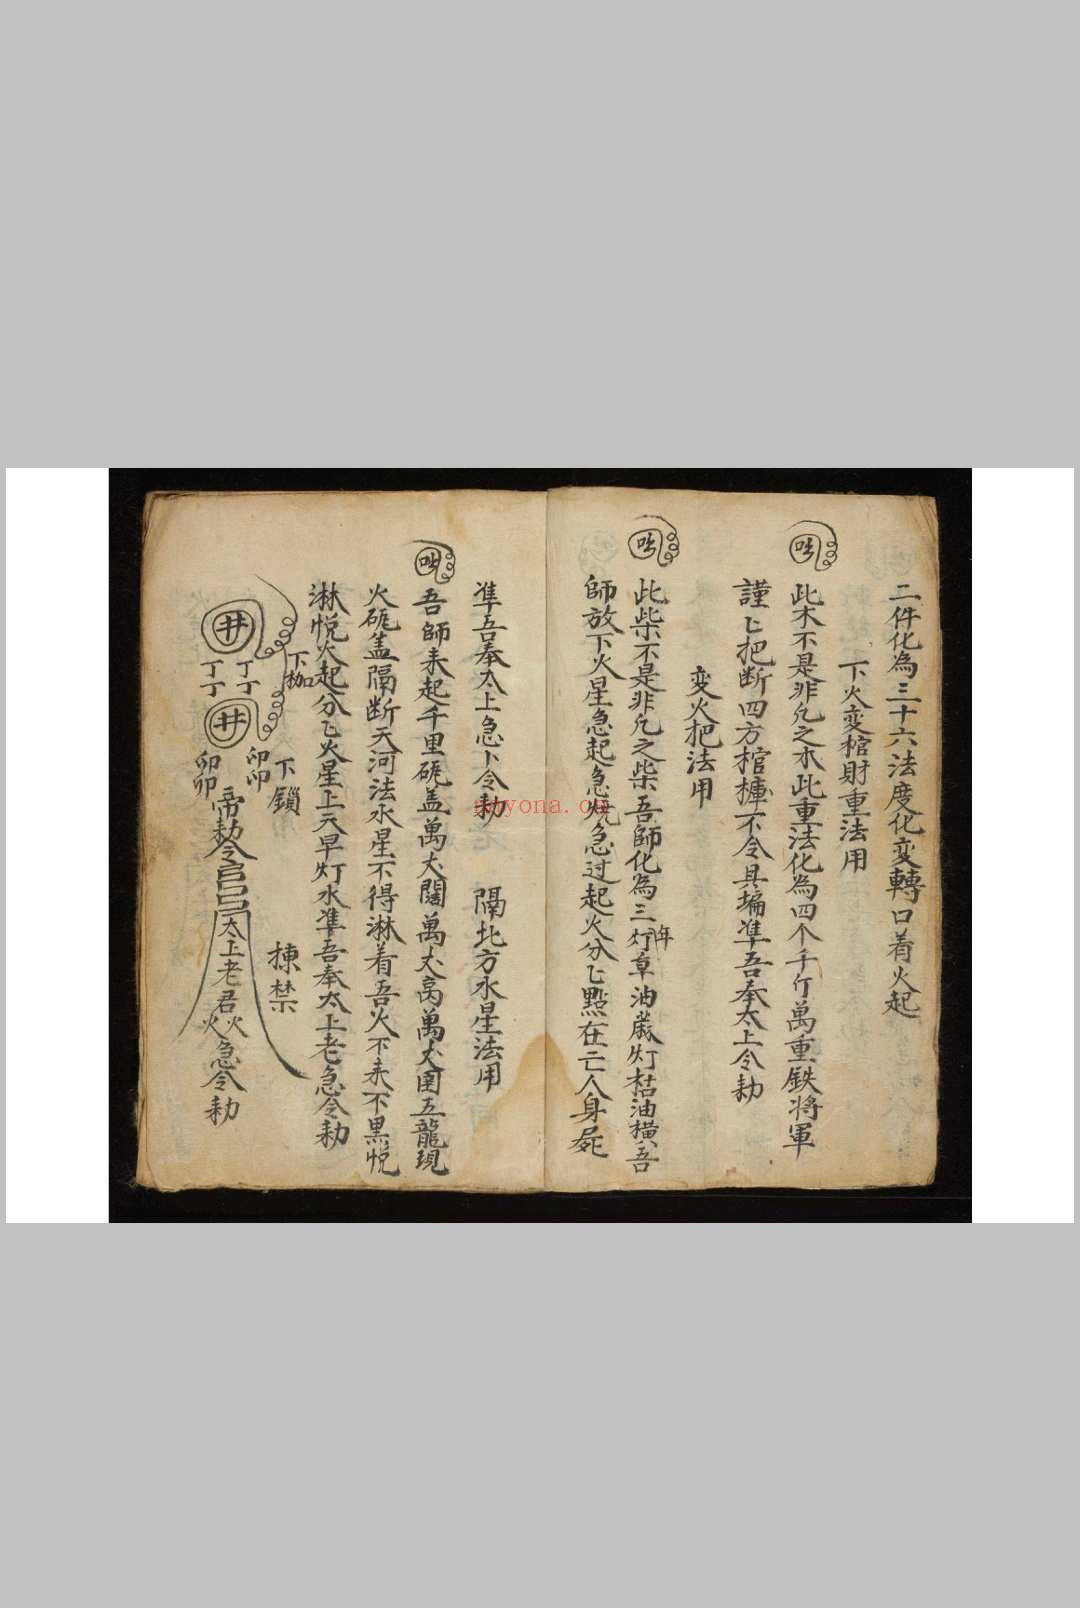 二件化為三十六法度化变轉口着火起
下火变棺財重法用
此木不是非凡之木此重法化為四个千斤萬重鉄将軍
謹匕把断四方棺槤不令具塴準吾奉太上令勑
变火把法用
此柴不是非凡之柴吾師化為三灯草油 灯枯油橫吾
師放下火星急起急 急过起火分匕點在亡人身屍
準吾奉太上急卜令勑 隔北方水星法用
吾師来起千里 盖萬丈闊萬丈高萬丈 五龍現
火 盖隔断天河法水星不得淋着吾火不来不黒悦
淋悦火起分匕火星上天旱灯水準吾奉太上老急令勑
下枷
下鎖
揀禁
井
丁丁
丁丁
井
卯卯
卯卯
帝勅令
太上老君火火急令勑
nayona.cn